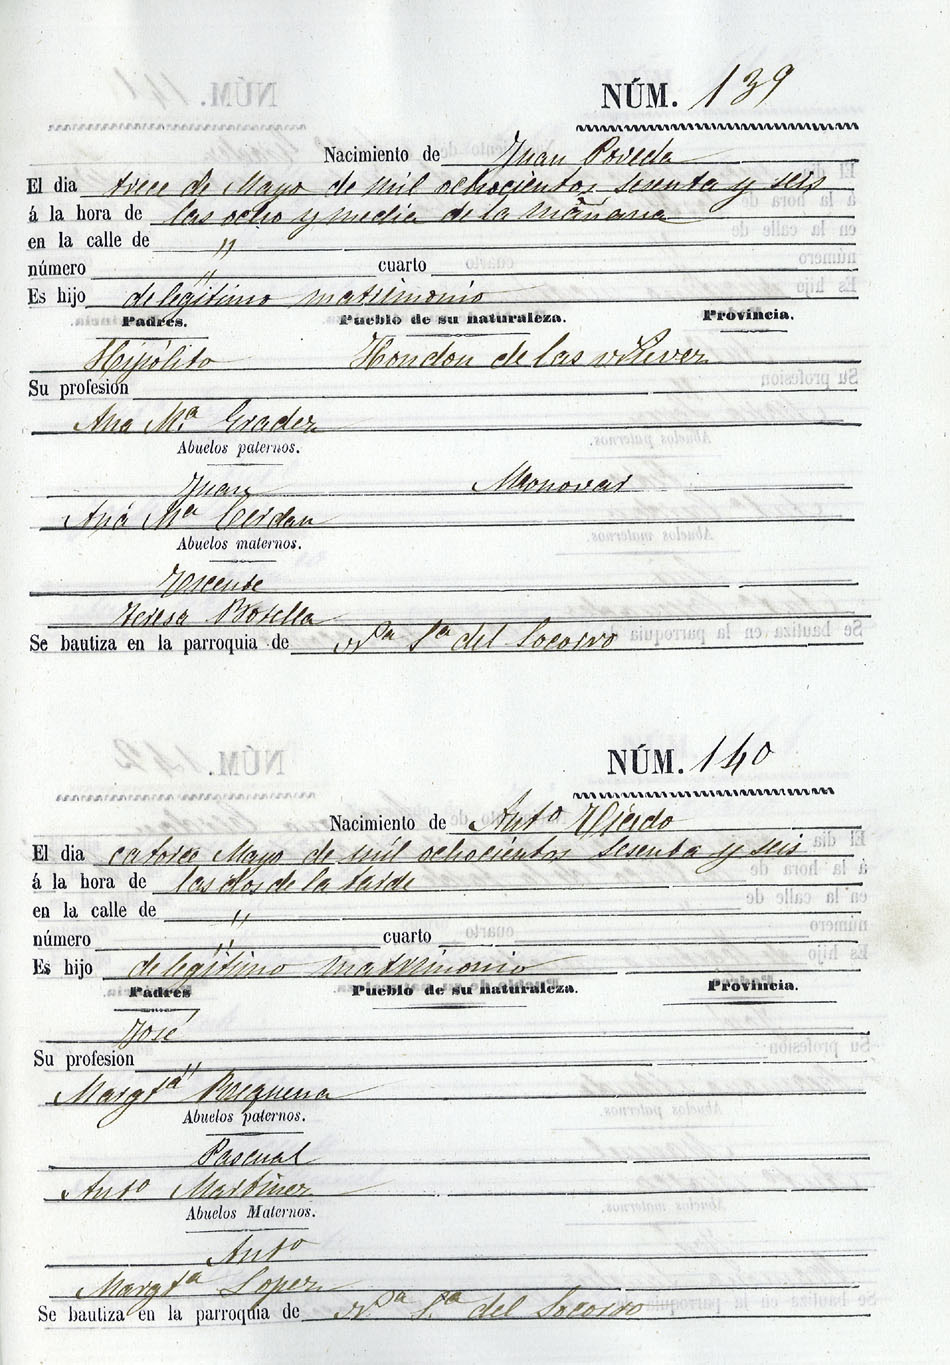 NÚM. 139
Nacimiento de Juan Poveda
El dia trece de Mayo de mil ochocientos sesenta y seis
á la hora de las ocho y media de la mañana
en la calle de "
número " cuarto
Es hijo de legítimo matrimonio
Padres. Pueblo de su naturaleza. Provincia.
Hipólito Hondon de las
Su profesion
Ana Mª
Abuelos paternos.
Juan Monovar
Ana Mª Cerdan
Abuelos maternos.
Vicente
Teresa Botella
Se bautiza en la parroquia de Nª Sª del Socorro
NÚM. 140
Nacimiento de Antº
El dia catorce Mayo de mil ochocientos sesenta y seis
á la hora de las dos de la tarde
en la calle de "
número " cuarto
Es hijo de legítimo matrimonio
Padres Pueblo de su naturaleza. Provincia.
José
Su profesion "
Margtª
Abuelos paternos.
Pascual
Antª Martinez
Abuelos Maternos.
Antº
Margtª Lopez
Se bautiza en la parroquia de Nª Sª del Socorro